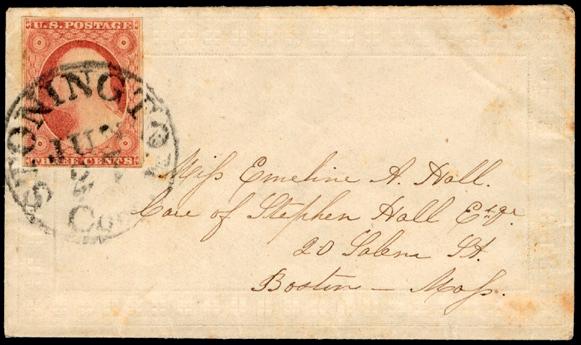 U.S. POSTAGE
THREE CENTS
STONINGTON
JUN
Con
Miss Emeline A. Hall.
Care of Stephen Hall Esqr.
20 Salem St.
Boston — Mass.